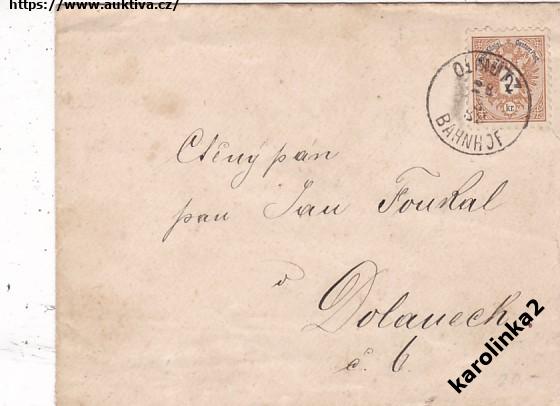 https://www.auktiva.cz/
OLMÜTZ
BAHNHOF
2
kr.
Ctěný pán
pan Jan Foukal
v
Dolanech
č. 6.
karolinka2